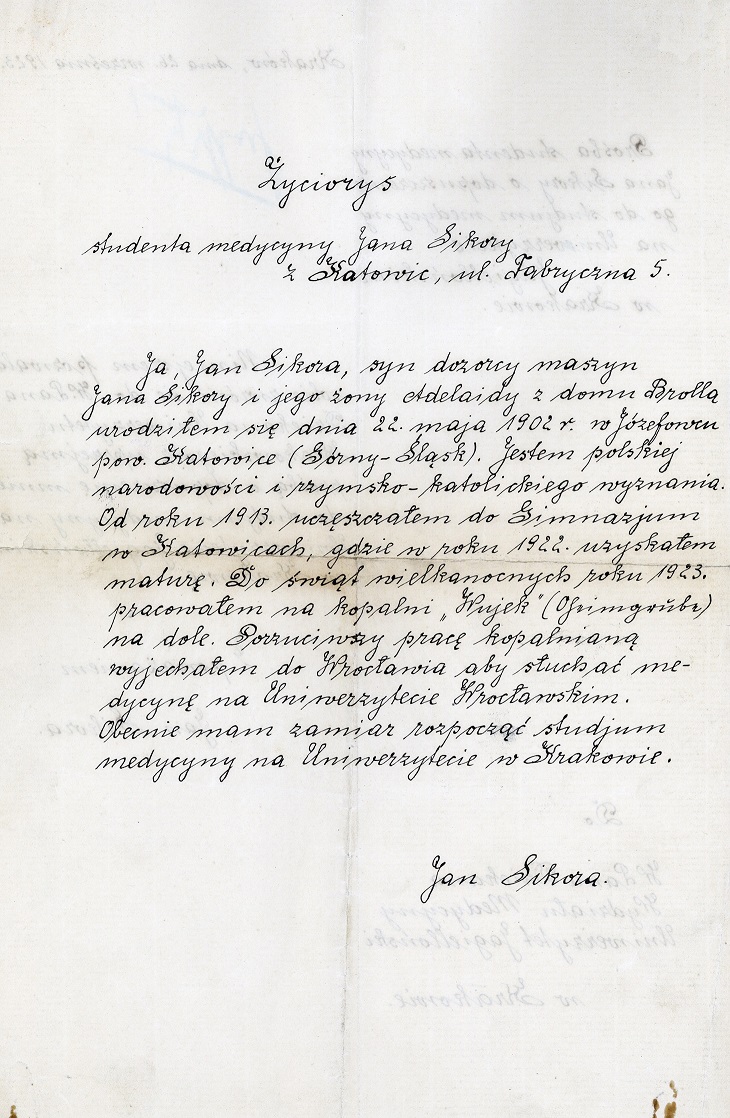 Życiorys
studenta medycyny Jana Sikory
z Katowic, ul. Fabryczna 5.
Ja, Jan Sikora, syn dozorcy maszyn
Jana Sikory i jego żony Adelaidy z domu Brolla
urodziłem się dnia 22. maja 1902 r. w Józefowcu
pow. Katowice (Górny-Śląsk). Jestem polskiej
narodowości i rzymsko-katolickiego wyznania.
Od roku 1913. uczęszczałem do Gimnazjum
w Katowicach, gdzie w roku 1922. uzyskałem
maturę. Do świąt wielkanocnych roku 1923.
pracowałem na kopalni „Wujek" (Oheimgrube)
na dole. Porzuciwszy pracę kopalnianą
wyjechałem do Wrocławia aby słuchać me-
dycynę na Uniwerzytecie Wrocławskim.
Obecnie mam zamiar rozpocząć studjum
medycyny na Uniwerzytecie w Krakowie.
Jan Sikora.